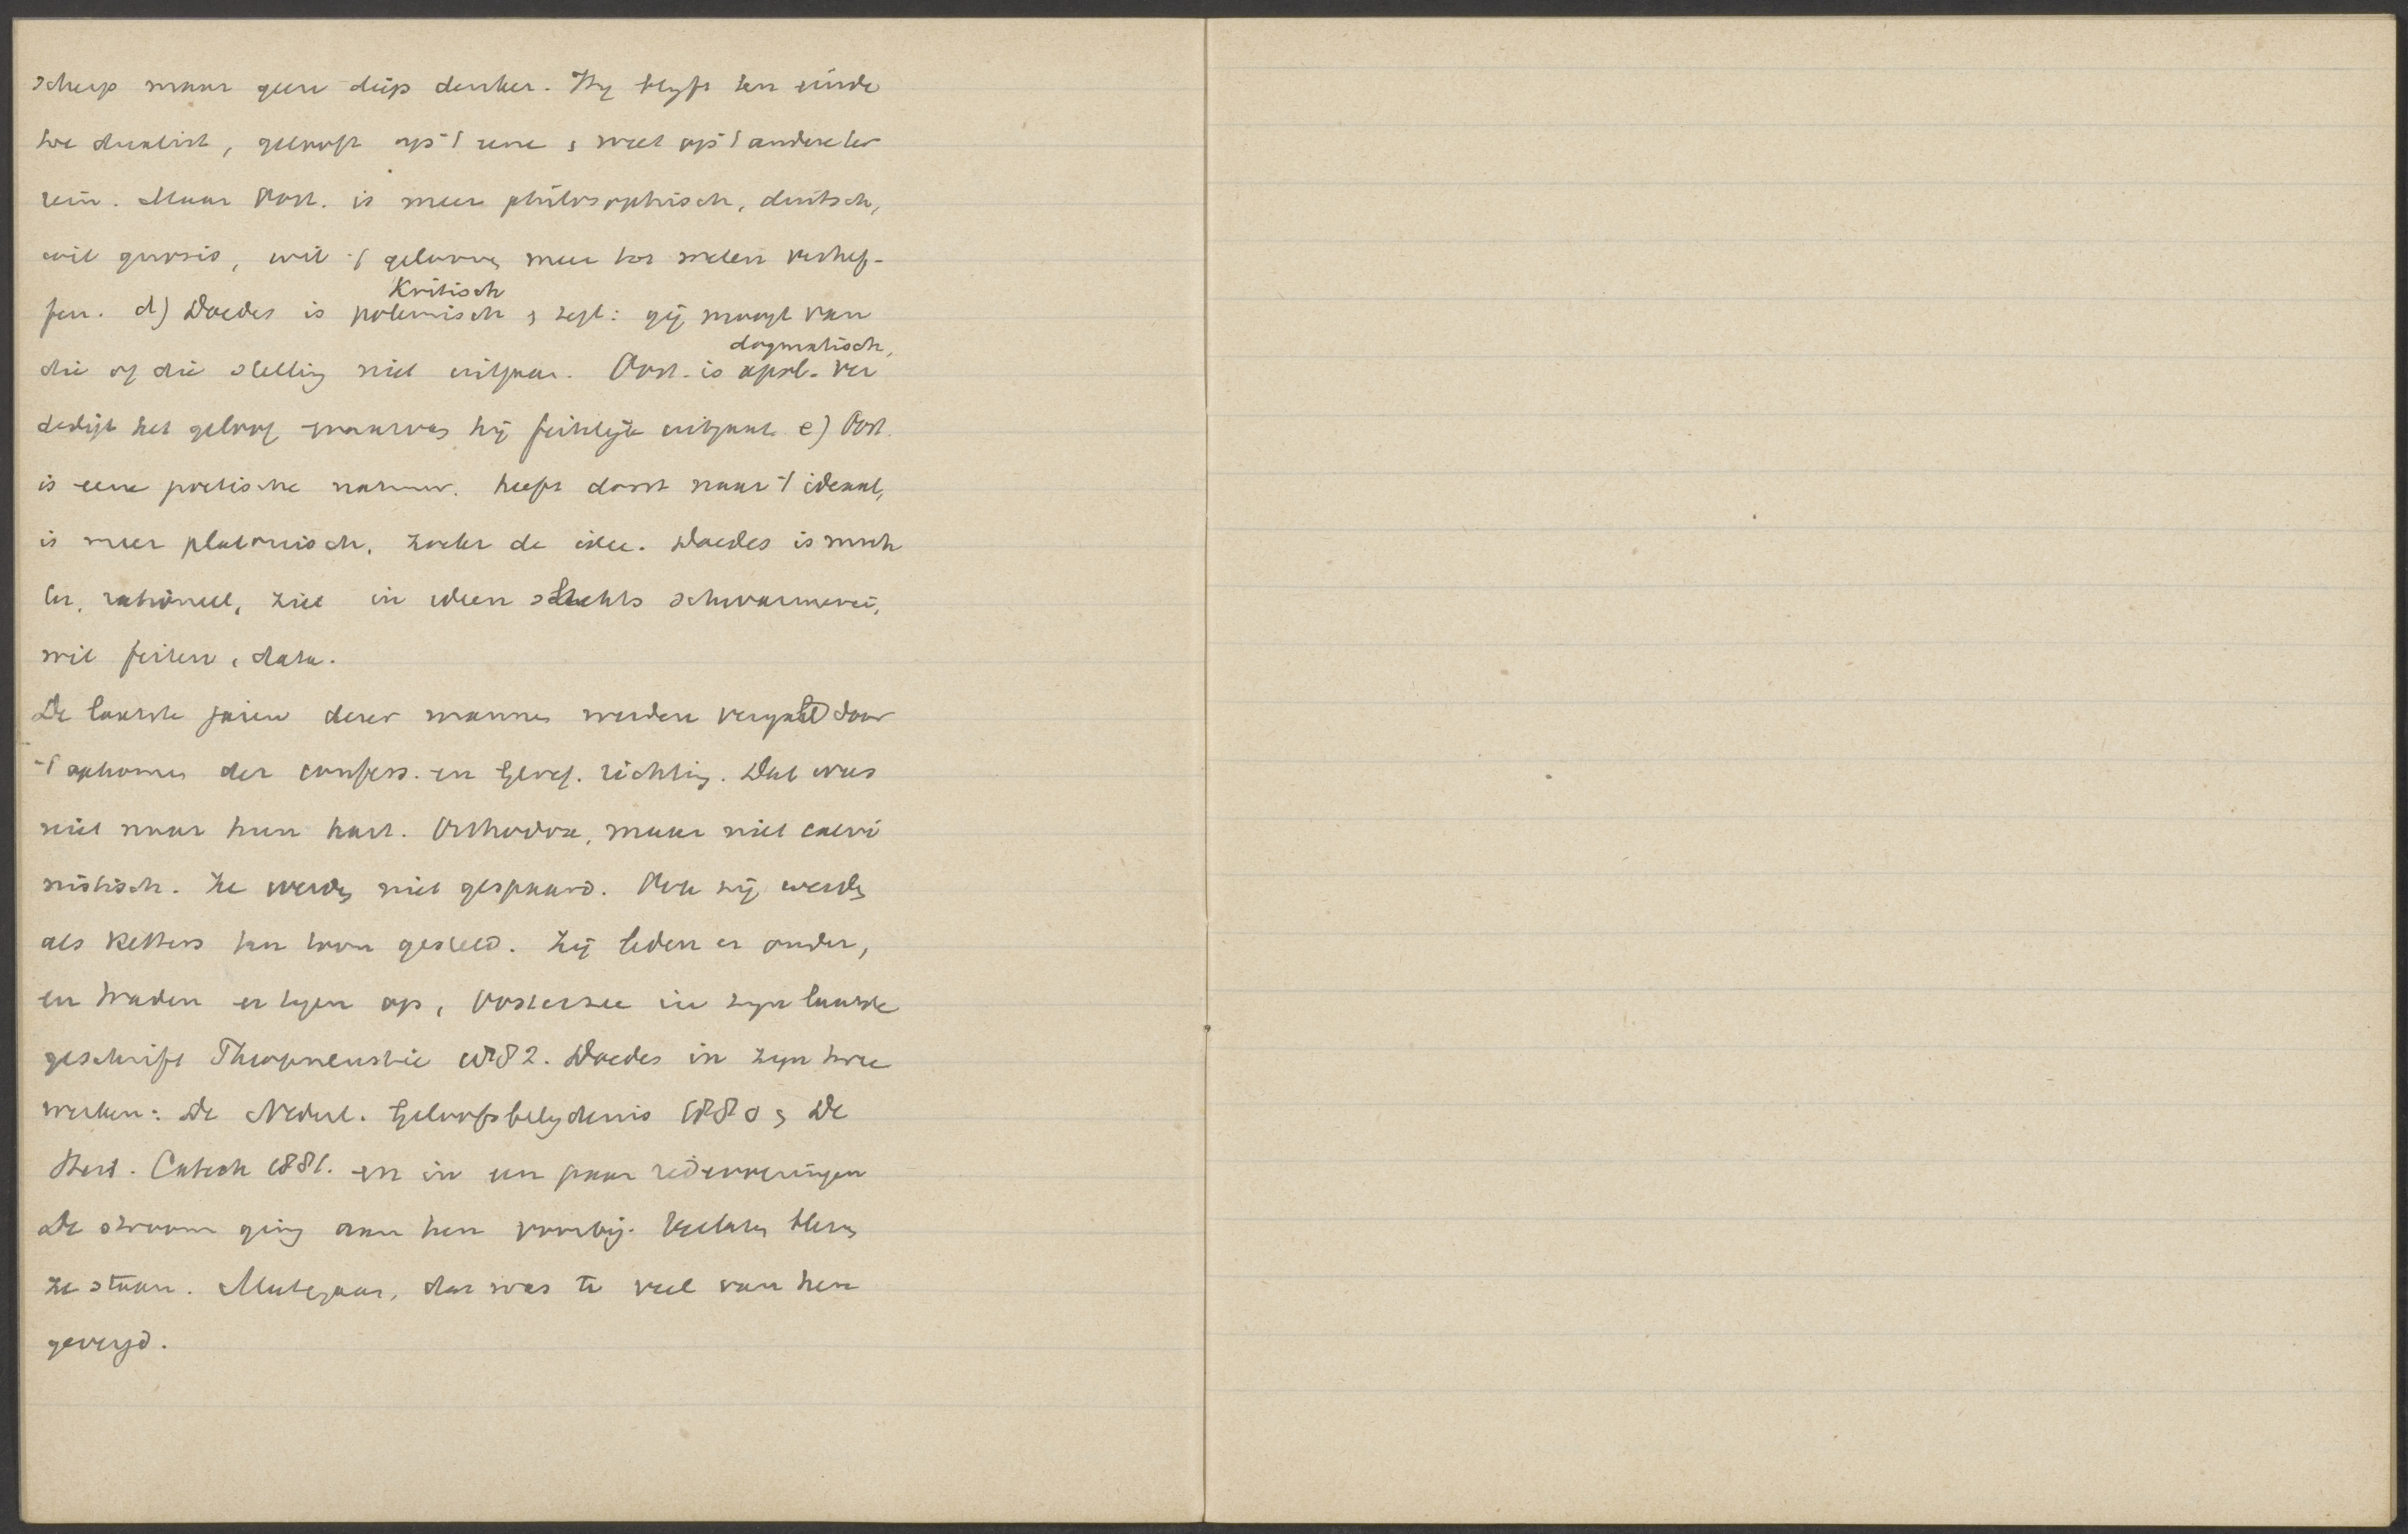 scherp maar geen diep denker. Hij blyft ten einde
toe dualist, gelooft op 't eene & weet op 't andere ter
rein. Maar Oost. is meer philosophisch, duitsch,
wil gnosis, wil 't gelooven meer tot weten verhef-
fen. d) Doedes is polemisch Kritisch & zegt: gij moogt van
die of die stelling niet uitgaan. Oost. is apol. dogmatisch, ver
dedigt het geloof waarvan hij feitelijk uitgaat e) Oost.
is eene poetische natuur. heeft dorst naar 't ideaal,
is meer platonisch, zoekt de idee. Doedes is nuch
ter, rationeel, ziet in ideen slechts schwarmerei,
wil feiten, data.
De laatste jaren dezer mannen werden vergald door
't opkomen der confess. en Geref. richting. Dat was
niet naar hun hart. Orthodox, maar niet calvi
nistisch. Ze werden niet gespaard. Ook zij werden
als ketters ten toon gesteld. Zij leden er onder,
en traden er tegen op, Oosterzee in zyn laatste
geschrift Theopneustie 1882. Doedes in zyn twee
werken: De Nederl. Geloofsbelydenis 1880 & De
Heid. Catech 1881. en in een paar redevoeringen
De stroom ging aan hen voorbij. Verlaten bleven
ze staan. Meetegaan, dat was te veel van hen
gevergd.